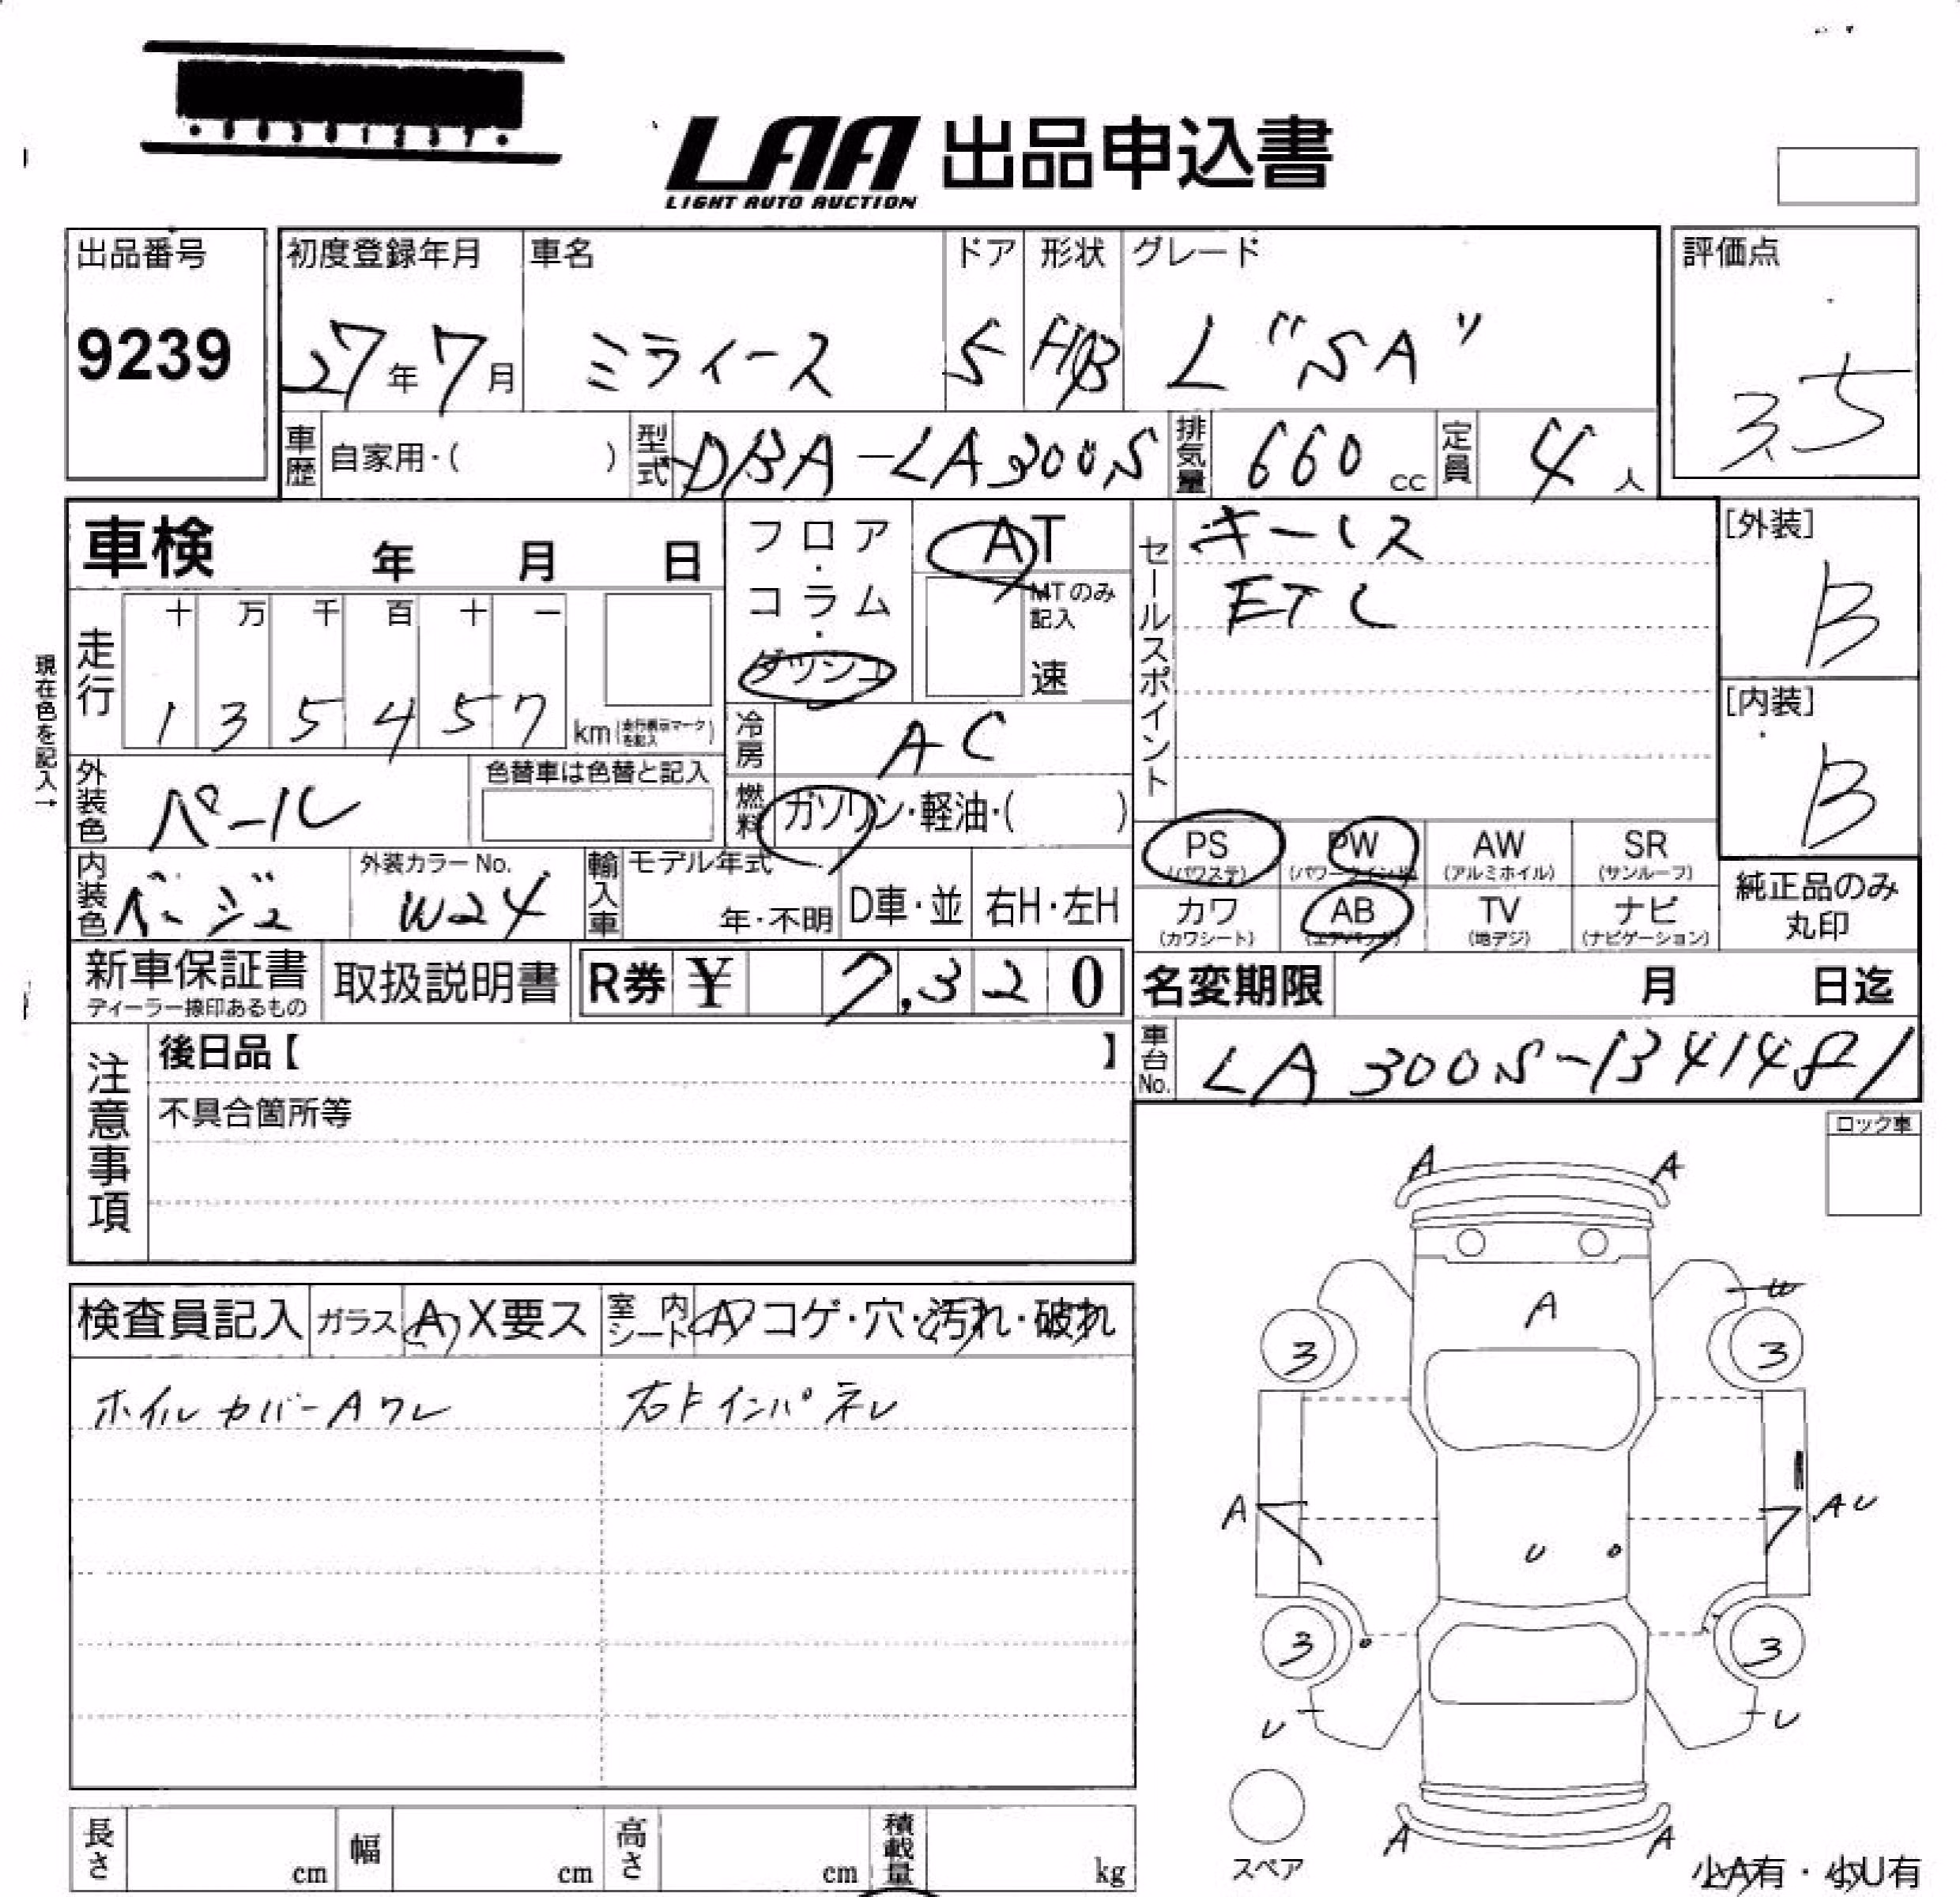 LAA 出品申込書
LIGHT AUTO AUCTION
出品番号 初度登録年月 車名 ドア 形状 グレード 評価点
9239 27年7月 ミライース 5 H/B L "SA" 3.5
車歴 自家用・( ) 型式 DBA-LA300S 排気量 660 cc 定員 4 人
車検 年 月 日
フロア・コラム・ダッシュ
AT
MTのみ記入
速
セールスポイント
キーレス
ETC
[外装]
B
[内装]
B
現在色を記入→
走行
十 万 千 百 十 一
1 3 5 4 5 7 km(走行表示マークを記入)
冷房 AC
外装色 パール 色替車は色替と記入
燃料 ガソリン・軽油・( )
PS (パワステ) PW (パワーウインドウ) AW (アルミホイル) SR (サンルーフ)
カワ (カワシート) AB (エアバッグ) TV (地デジ) ナビ (ナビゲーション)
純正品のみ丸印
内装色 ベージュ 外装カラーNo. W24 輸入車 モデル年式 年・不明 D車・並 右H・左H
新車保証書 ディーラー捺印あるもの 取扱説明書 R券 ¥ 7,320
名変期限 月 日迄
車台No. LA300S-1341481
注意事項
後日品【 】
不具合箇所等
ロック車
A A
A W
3 3
A AU
U
3 3
U U
A A
スペア
小A有・小U有
検査員記入 ガラス A X要ス 室内シート A コゲ・穴・汚れ・破れ
ホイルカバーAワレ 右下インパネレ
長さ cm 幅 cm 高さ cm 積載量 kg